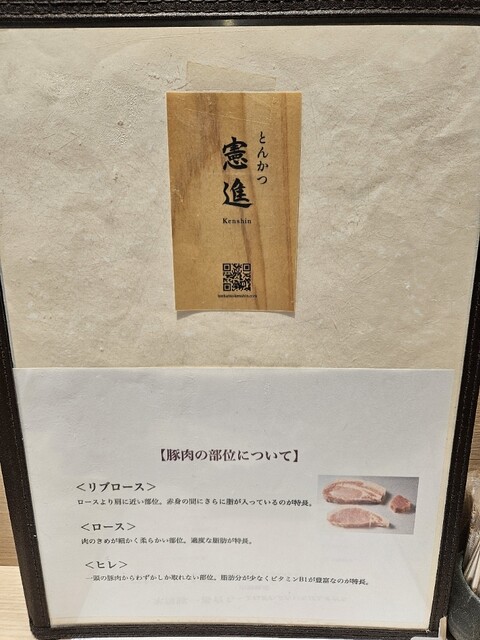 とんかつ
憲進
Kenshin
【豚肉の部位について】
＜リブロース＞
ロースより肩に近い部位。赤身の間にさらに脂が入っているのが特長。
＜ロース＞
肉のきめが細かく柔らかい部位。適度な脂肪が特長。
＜ヒレ＞
一頭の豚肉からわずかしか取れない部位。脂肪分が少なくビタミンB1が豊富なのが特長。